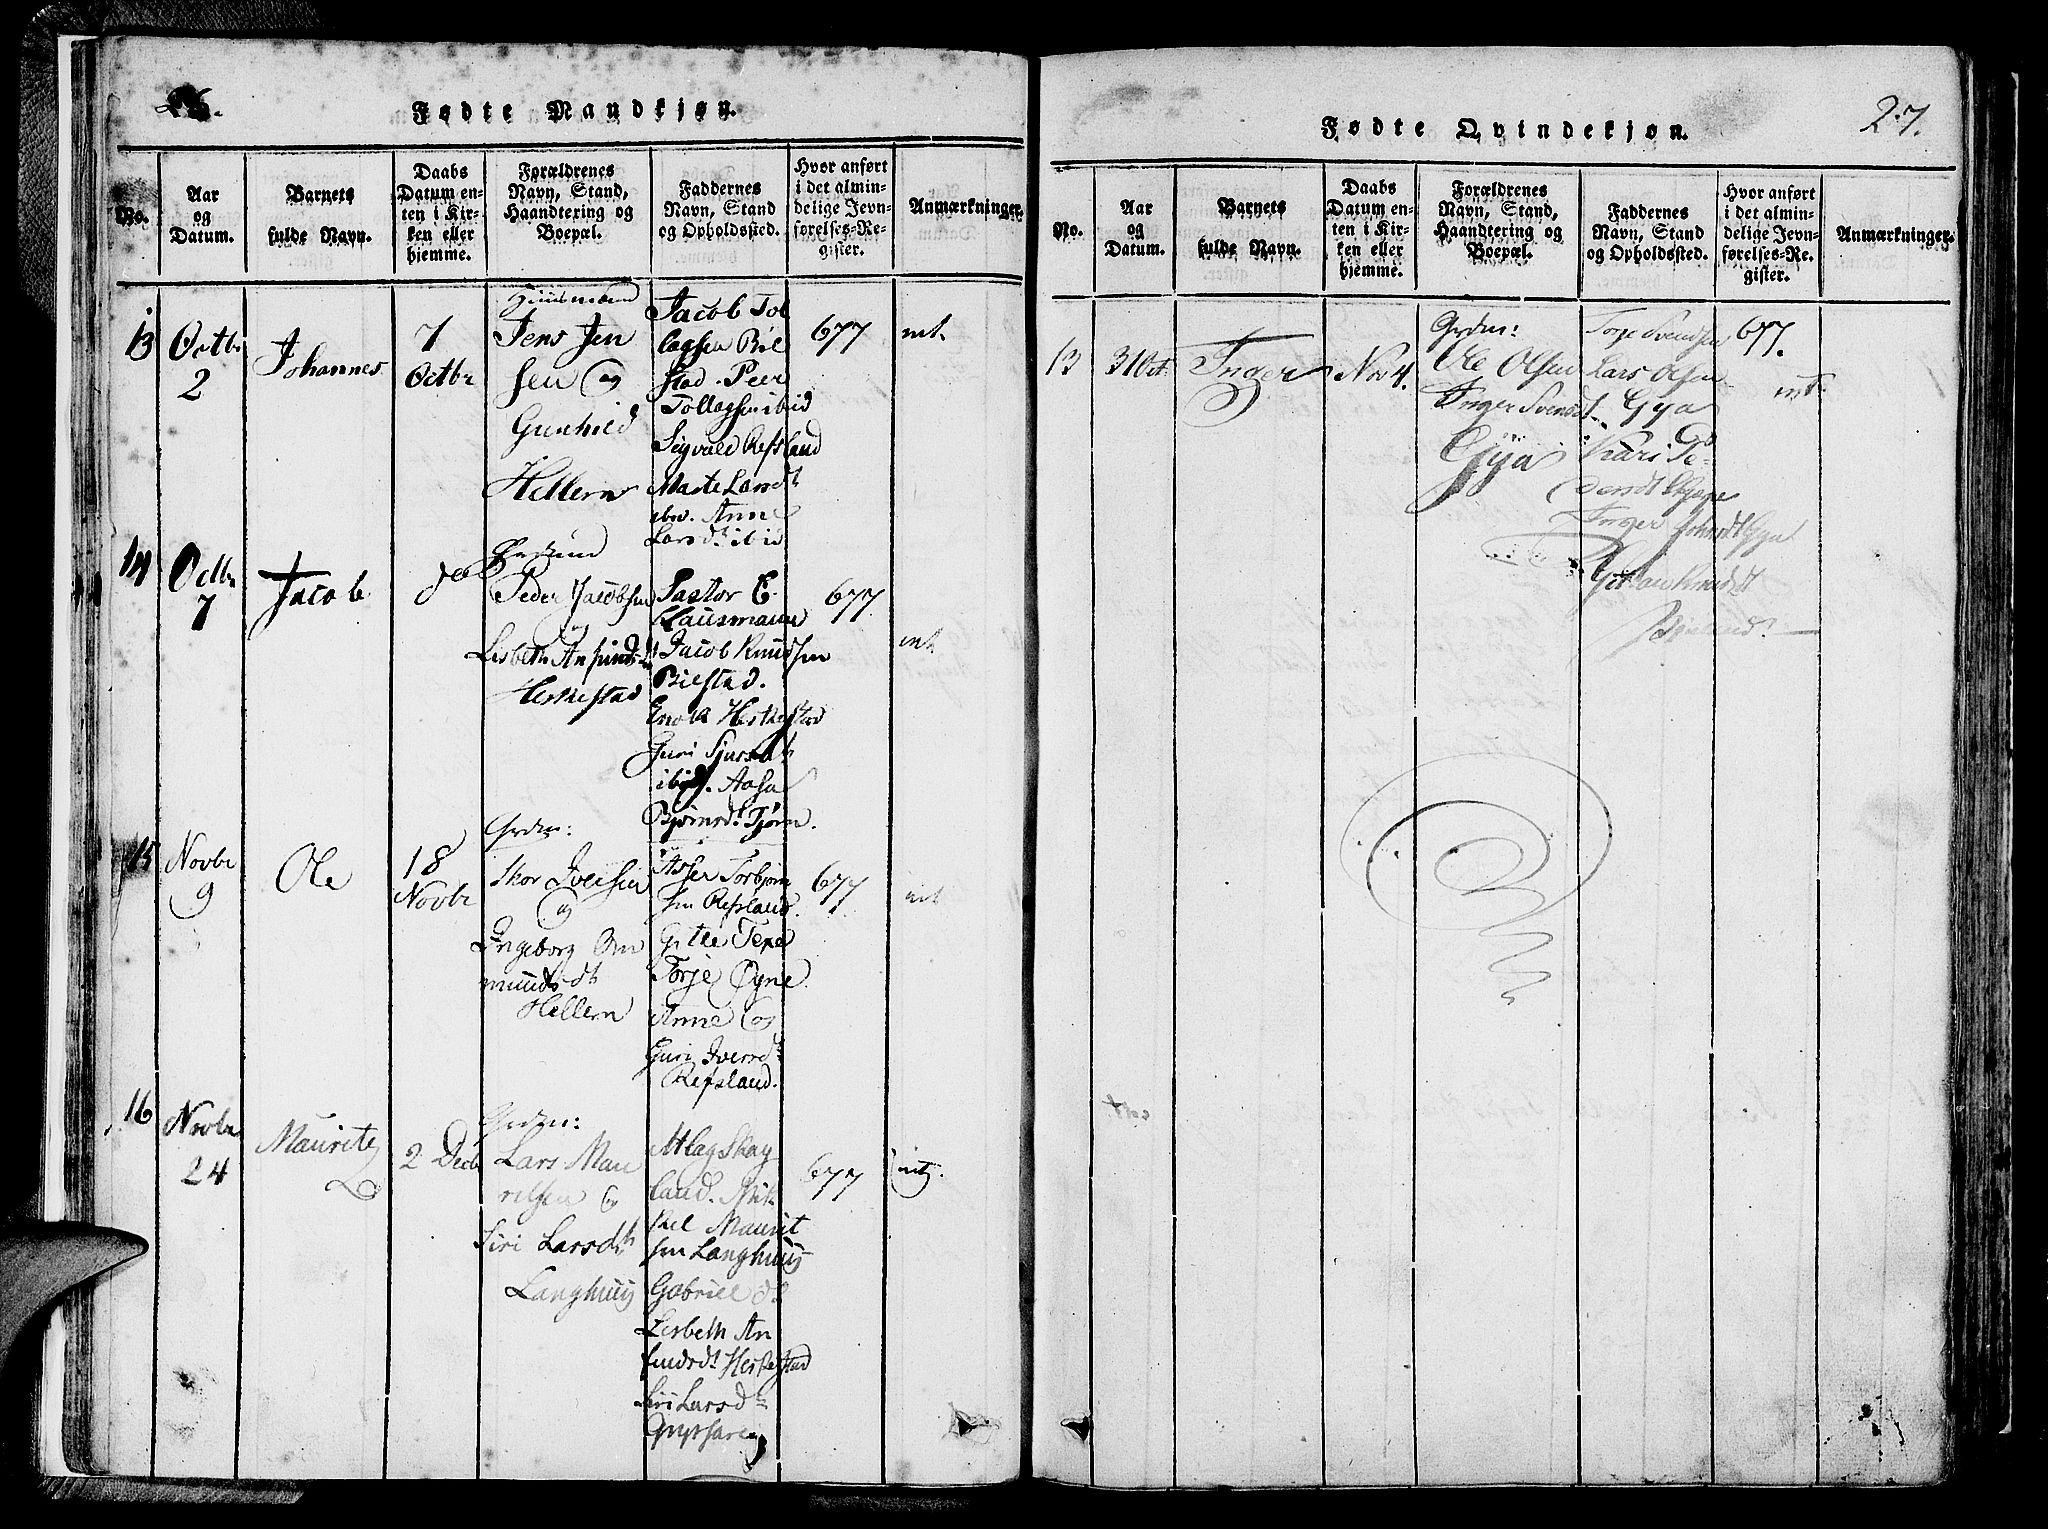 26.
Fødte Mandkjøn.
No.
Aar
og
Datum.
Barnets
fulde Navn.
Daabs
Datum en-
ten i Kir-
ken eller
hjemme.
Forældrenes
Navn, Stand,
Haandtering og
Boepæl.
Faddernes
Navn, Stand
og Opholdssted.
Hvor anført
i det almin-
delige Jevn-
førelses-Re-
gister.
Anmærkninger.
13
Octbr
2
Johannes
7
Octbr
Huusmand
Jens Jen
sen og
Gunhild
Hellern
Jacob Tol
lagsen Bil
stad. Peer
Tollagsen ibid
Sigvald Refsland
Marte Larsdt
Anne
Larsdt ibid
677
int.
14
Octbr
7
Jacob
do
Peder Jacobsen
og
Lisbeth
Heskestad
Pastor E.
Clausmann
Jacob Knudsen
Bilstad.
Enok Heskestad
Guri Sjursdt
ibid. Aasa
Bjørnsdt Tjørn.
677
int
15
Novbr
9
Ole
18
Novbr
Grdm:
Thor Iversen
og
Ingeborg Om
mundsdt
Hellern
Asser Torbjørn
sen Refsland.
Gitle Texe
Torje Øyne
Anne og
Guri Iversdt
Refsland.
677
int
16
Novbr
24
Maurits
2 Decb
Grdm:
Lars Mau
ritsen og
Siri Larsdt
Langhuus
Atlag Skay
land. Mik
kel Maurit
sen Langhuus
Gabriel do
Lisbeth An
findsdt Heskestad
Siri Larsdt
677
int.
27.
Fødte Qvindekjøn.
No.
Aar
og
Datum.
Barnets
fulde Navn.
Daabs
Datum en-
ten i Kir-
ken eller
hjemme.
Forældrenes
Navn, Stand,
Haandtering og
Boepæl.
Faddernes
Navn, Stand
og Opholdssted.
Hvor anført
i det almin-
delige Jevn-
førelses-Re-
gister.
Anmærkninger.
13
31 Oct.
Inger
Nov 4.
Grdm:
Ole Olsen
Inger Svensdt
Gya
Torje Svendsen
Lars Olsen
Gya
Kari Pe-
dersdt
Inger Johnsdt Gya
677.
int.